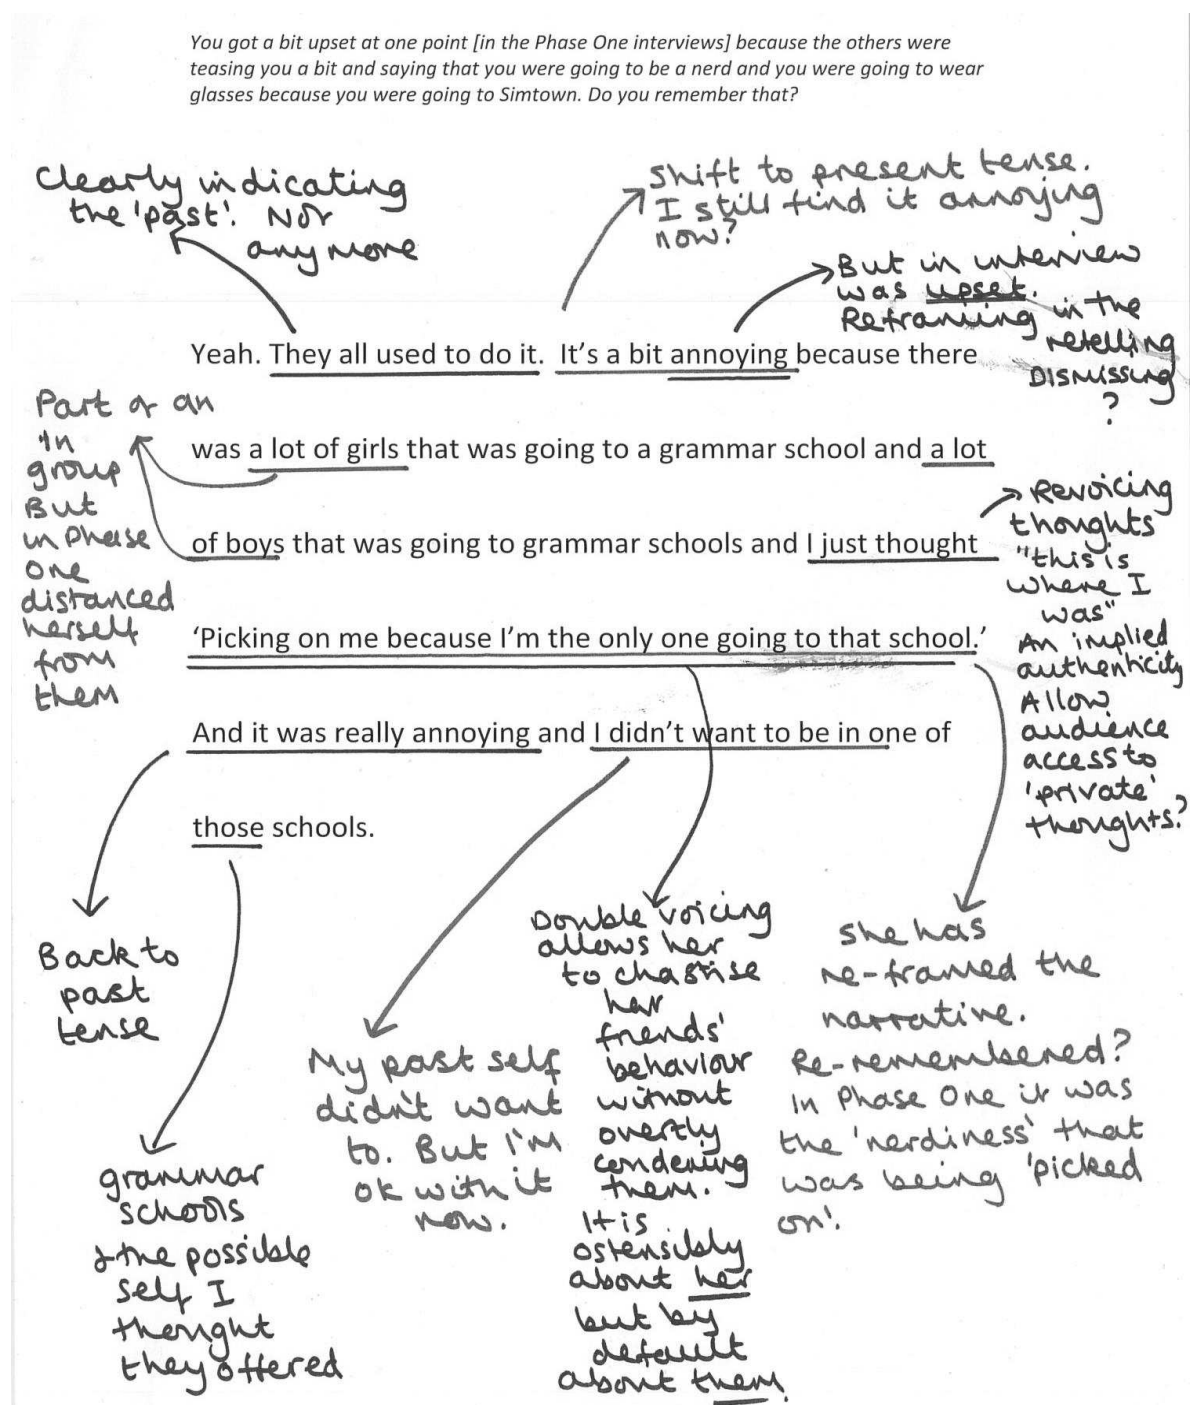 You got a bit upset at one point [in the Phase One interviews] because the others were
teasing you a bit and saying that you were going to be a nerd and you were going to wear
glasses because you were going to Simtown. Do you remember that?
Clearly indicating
the 'past'. Not
any more
Shift to present tense.
I still find it annoying
now?
But in interview
was upset.
Reframing in the
retelling
DISMISSING
?
Yeah. They all used to do it. It's a bit annoying because there
was a lot of girls that was going to a grammar school and a lot
of boys that was going to grammar schools and I just thought
'Picking on me because I'm the only one going to that school.'
And it was really annoying and I didn't want to be in one of
those schools.
Part of an
'in
group
But
in Phase
one
distanced
herself
from
them
Revoicing
thoughts
"this is
where I
was"
An implied
authenticity
Allow
audience
access to
'private'
thoughts?
Back to
past
tense
grammar
schools
& the possible
self I
thought
they offered
My past self
didn't want
to. But I'm
ok with it
now.
Double voicing
allows her
to chastise
her
friends'
behaviour
without
overtly
condening
them.
It is
ostensibly
about her
but by
default
about them.
She has
re-framed the
narrative.
Re-remembered?
In Phase One it was
the 'nerdiness' that
was being 'picked
on'.